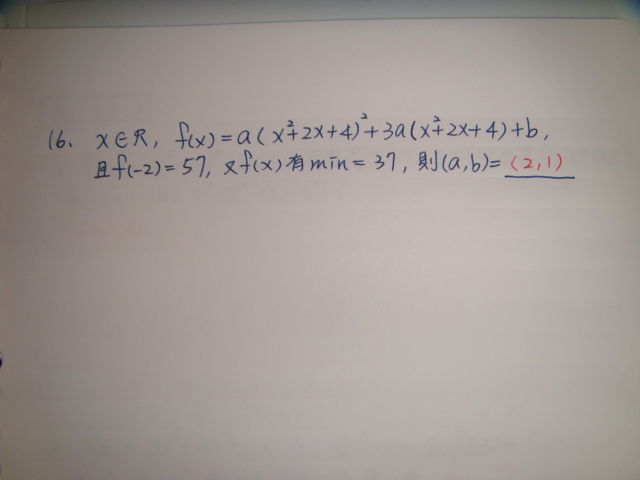 16. x∈R, f(x)=a(x²+2x+4)²+3a(x²+2x+4)+b,
且f(-2)=57, 又f(x)有min=37, 則(a,b)= (2,1)